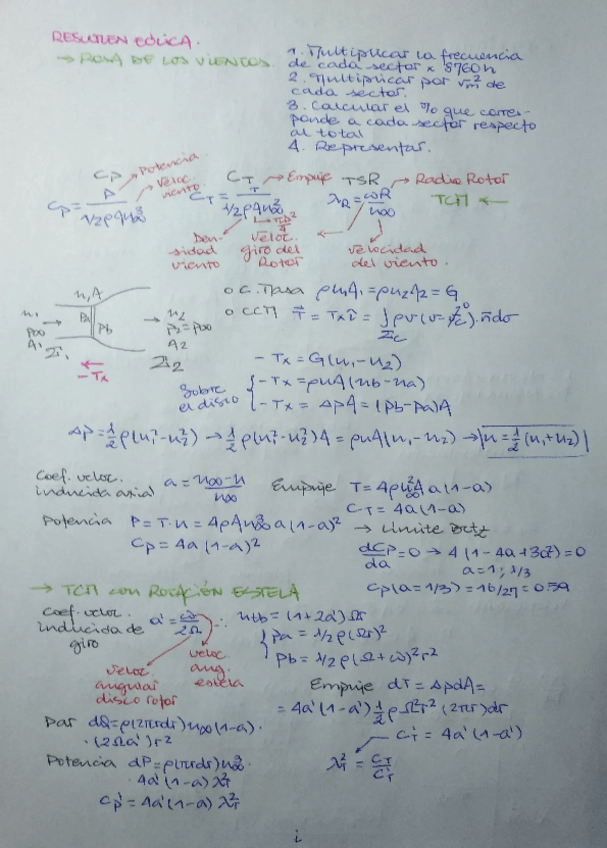 RESUMEN EÓLICA.
→ ROSA DE LOS VIENTOS.
1. Multiplicar la frecuencia
de cada sector x 8760h
2. Multiplicar por v_m^2 de
cada sector.
3. Calcular el % que corres-
ponde a cada sector respecto
al total
4. Representar.
C_P → Potencia
C_P = P / (1/2 ρ A u_∞^3) → Veloc. viento
C_T → Empuje
C_T = T / (1/2 ρ A u_∞^2)
πD^2/4
Den-
sidad
viento
TSR → Radio Rotor
λ_R = ωR / u_∞
TCM ←
Veloc.
giro del
Rotor
Velocidad
del viento.
u, A
u_1 p_∞ A_1 Σ_1
Pa Pb
u_2 p_2 = p_∞ A_2 Σ_2
← -Tx
o C. Masa ρu_1A_1 = ρu_2A_2 = G
o CCM
-Tx = G(u_1 - u_2)
Sobre
el disco
-Tx = ρuA(ub - ua)
-Tx = ΔpA = (pb - pa)A
Δp = 1/2 ρ(u_1^2 - u_2^2) → 1/2 ρ(u_1^2 - u_2^2)A = ρuA(u_1 - u_2) → u = 1/2 (u_1 + u_2)
Coef. veloc.
inducida axial a = (u_∞ - u) / u_∞
Empuje T = 4ρu_∞^2 A a(1-a)
C_T = 4a(1-a)
Potencia P = T·u = 4ρAu_∞^3 a(1-a)^2
C_P = 4a(1-a)^2
→ Límite Betz
dC_P/da = 0 → 4(1-4a+3a^2) = 0
a = 1; 1/3
C_P(a=1/3) = 16/27 = 0.59
→ TCM CON ROTACIÓN ESTELA
Coef. veloc.
inducida de
giro a' = ω/2Ω
veloc.
angular
disco rotor
veloc.
ang.
estela
∴ utb = (1+2a')Ωr
Pa = 1/2 ρ(Ωr)^2
Pb = 1/2 ρ(Ω+ω)^2 r^2
Empuje dT = ΔpdA =
= 4a'(1-a') 1/2 ρΩ^2r^2 (2πr)dr
C_T' = 4a'(1-a')
Par dQ = ρ(2πrdr)u_∞(1-a)·
·(2Ωa')r^2
λ_r^2 = C_T / C_T'
Potencia dP = ρ(πrdr)u_∞^3·
·4a'(1-a)λ_r^2
C_P' = 4a'(1-a)λ_r^2
i